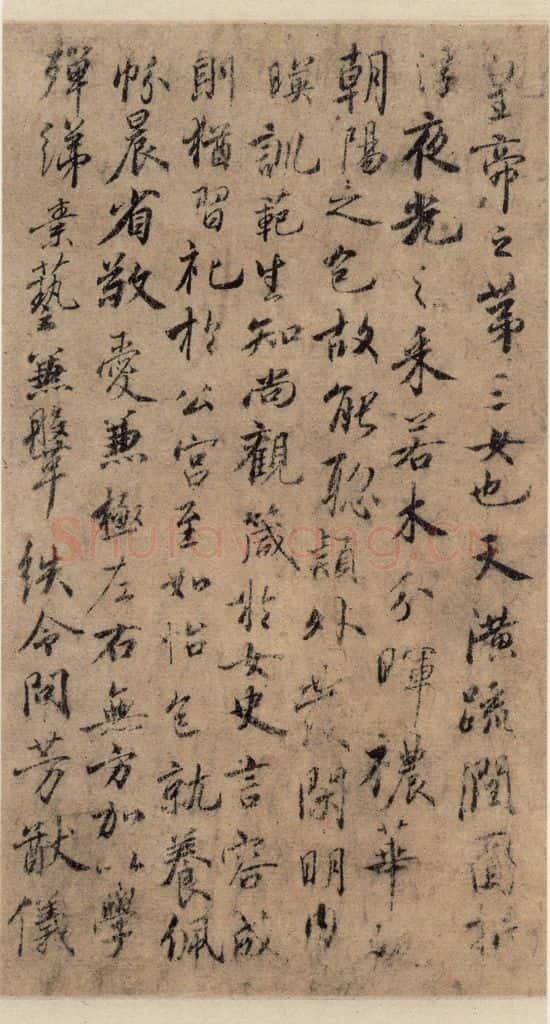 皇帝之苐三女也天潢疏潤圎折
浮夜光之采若木分暉襛華
朝陽之色故能聡頴外發閑明内
暎訓範生知尚觀箴於女史言容成
則猶習礼於公宮至如怡色就養佩
帉晨省敬愛兼極左右無方加以學
殫綈素藝兼鞶紩令問芳猷儀
Shufawang.cn